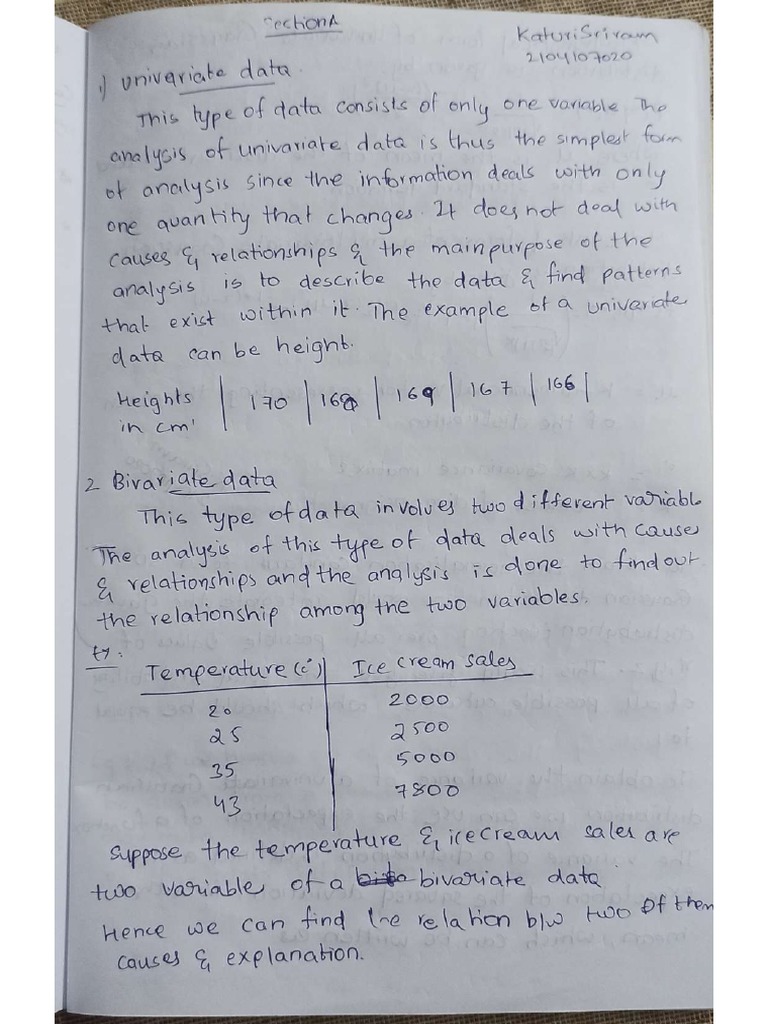 Section A
Katuri Sriram
2104107020
1) univariate data.
This type of data consists of only one variable The
analysis of univariate data is thus the simplest form
of analysis since the information deals with only
one quantity that changes. It does not deal with
causes & relationships & the main purpose of the
analysis is to describe the data & find patterns
that exist within it. The example of a univariate
data can be height.
Heights | 170 | 168 | 169 | 167 | 166 |
in cm'
2 Bivariate data
This type of data involves two different variable
The analysis of this type of data deals with causes
& relationships and the analysis is done to find out
the relationship among the two variables.
Ex:
Temperature (c°) Ice cream sales
20 2000
25 2500
35 5000
43 7800
Suppose the temperature & icecream sales are
two variable of a bivariate data
Hence we can find the relation b/w two of them
causes & explanation.